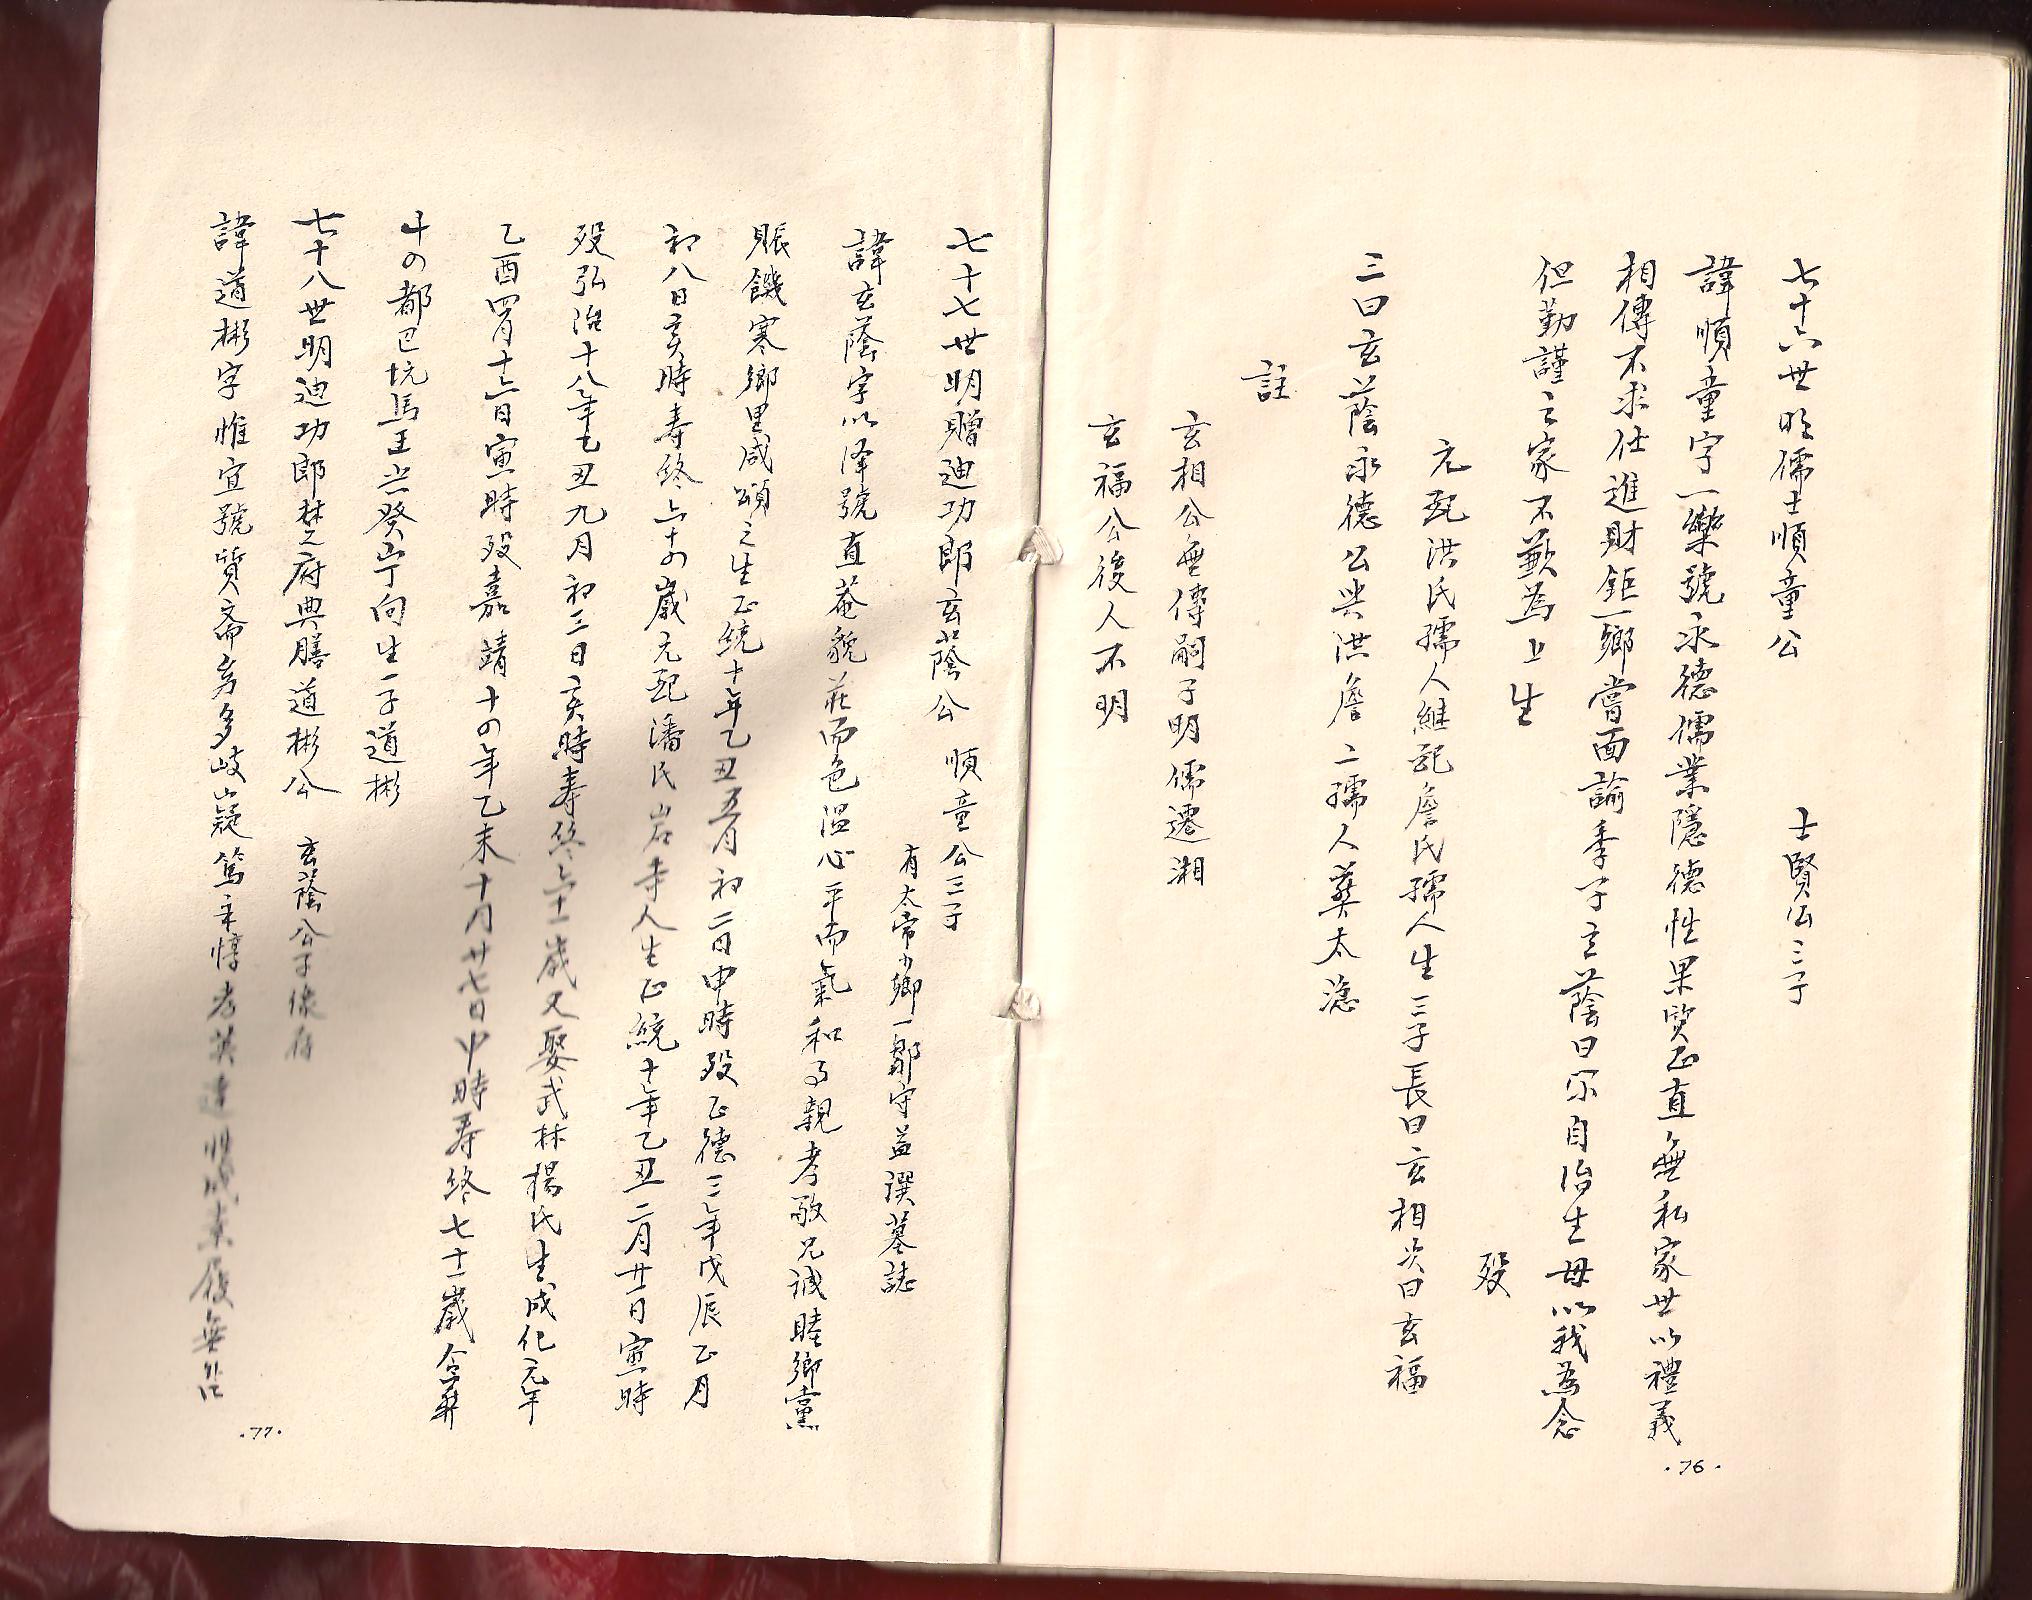 七十六世明儒士順童公 士賢公三子
諱順童字一樂號永德儒業隱德性果質正直無私家世以禮義
相傳不求仕進財鉅一鄉嘗面諭季子玄蔭曰尔自治生毋以我為念
但勤謹立家不歉為上生 歿
元配洪氏孺人継配詹氏孺人生三子長曰玄相次曰玄福
三曰玄蔭永德公與洪詹二孺人葬太
註
玄相公無傳嗣子明儒遷湘
玄福公後人不明
·76·
七十七世明贈迪功郎玄蔭公 順童公三子
有太常少卿一鄒守益譔墓誌
諱玄蔭字以泽號直菴貌莊而色温心平而氣和事親孝敬兄诚睦鄉黨
賑饑寒鄉里咸頌之生正統十年乙丑五月初二日申時歿正德三年戊辰正月
初八日亥時寿終六十四歲元配潘氏岩寺人生正統十年乙丑二月廿一日寅時
歿弘治十八年乙丑九月初三日亥時寿終六十一歲又娶武林楊氏生成化元年
乙酉四月十六日寅時歿嘉靖十四年乙未十月廿七日申時寿終七十一歲合葬
十四都巴坑馬王尖癸山丁向生一子道彬
七十八世明迪功郎楚府典膳道彬公 玄蔭公子像存
諱道彬字惟宜號質斋多岐嶷篤孝惇孝英達性成素履無外
·77·